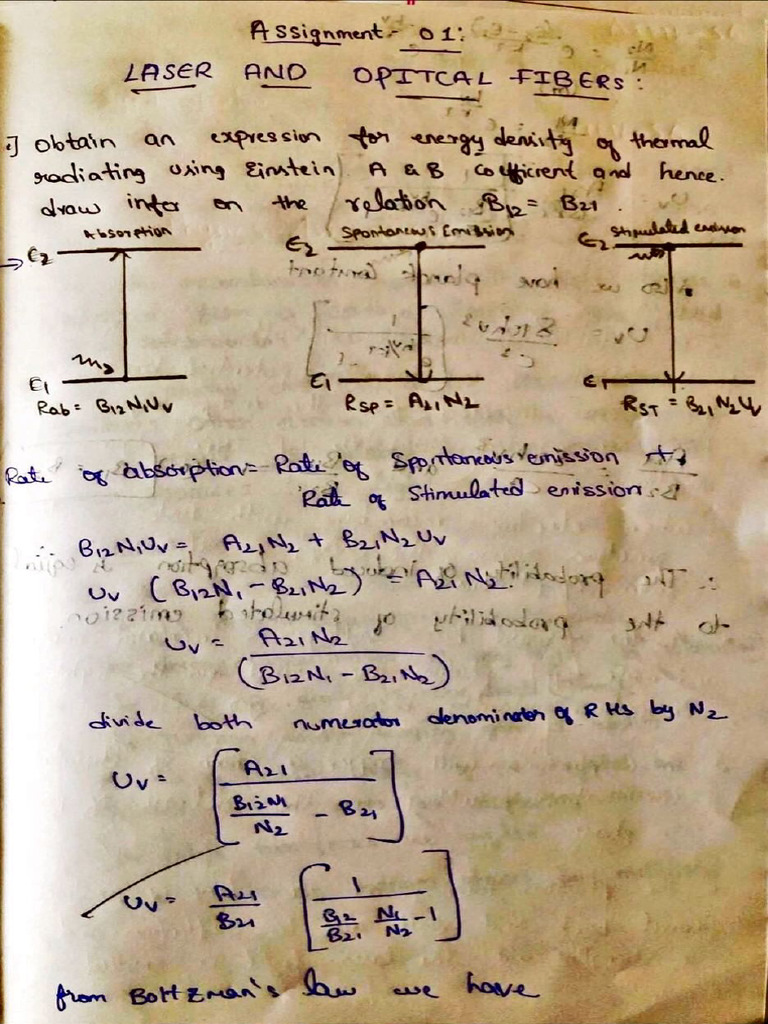 Assignment - 01:
LASER AND OPITCAL FIBERS:
1] Obtain an expression for energy density of thermal
radiating using Einstein A & B coefficient and hence.
draw infer on the relation B12 = B21.
Absorption Spontaneous Emission Stimulated emission
E2 E2 E2
E1 E1 E1
Rab = B12N1Uv RSP = A21N2 RST = B21N2Uv
Rate of absorption = Rate of Spontaneous emission +
Rate of Stimulated emission.
∴ B12N1Uv = A21N2 + B21N2Uv
Uv (B12N1 - B21N2) = A21N2.
Uv = A21N2
(B12N1 - B21N2)
divide both numerator denominator of RHS by N2
Uv = [A21
B12N1/N2 - B21]
Uv = A21/B21 [1
B12/B21 N1/N2 - 1]
from Boltzman's law we have